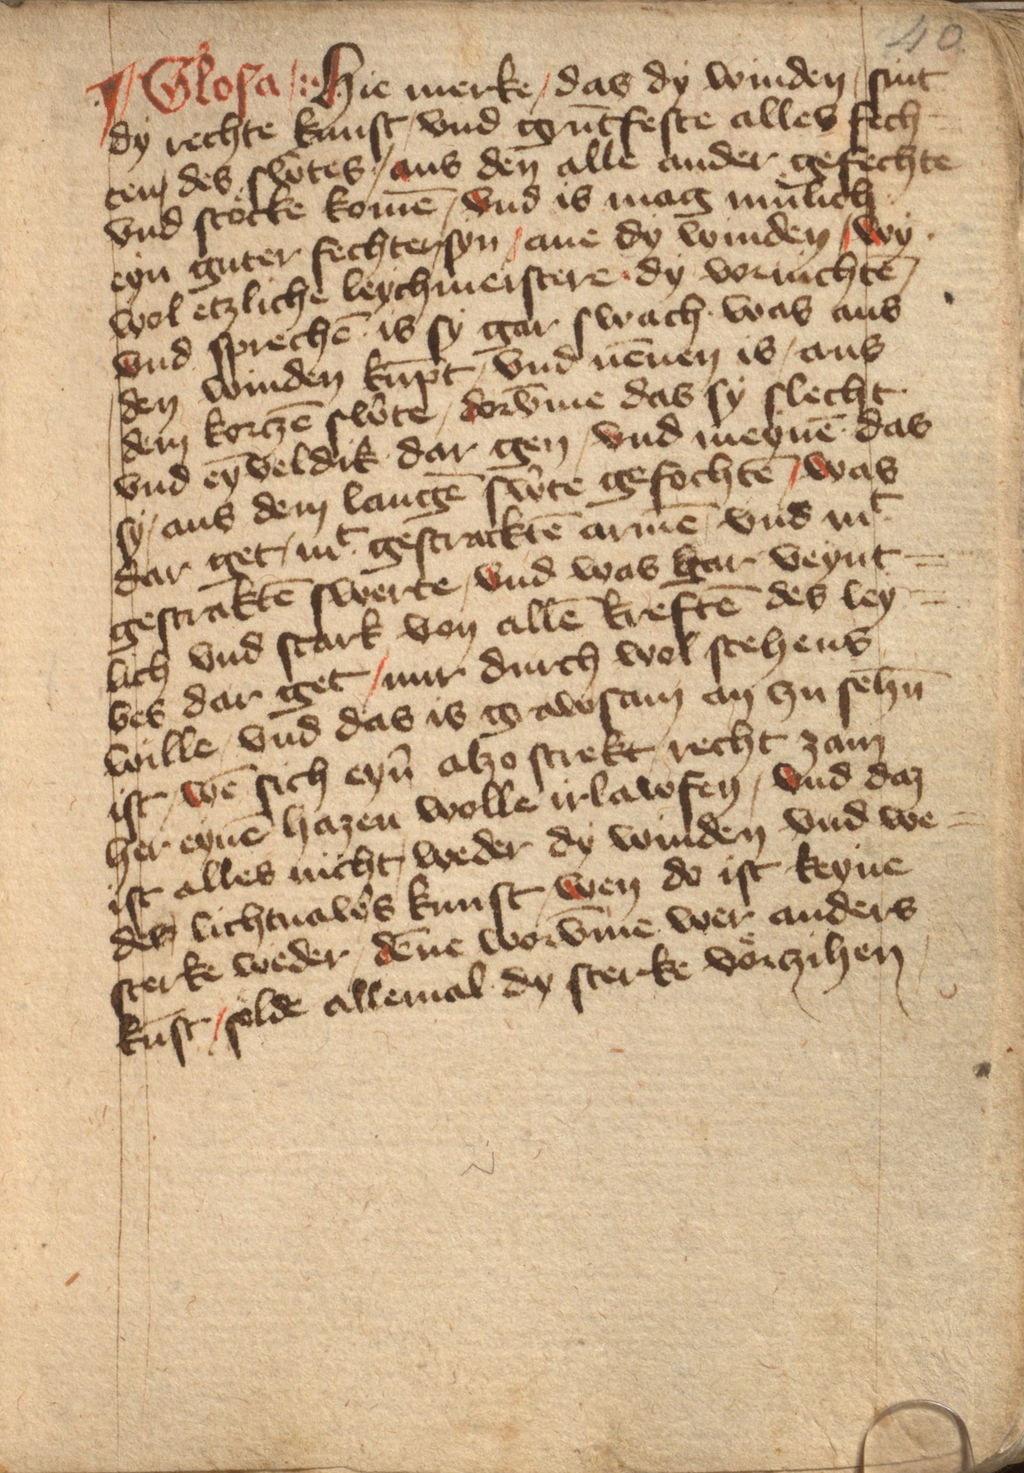 40
Glosa / Hie merke / das dy winden / sint
dy rechte kunst / vnd gru̅tfeste alles fech-
tens des sw̉tes / aus den alle ander gefechte
vnd stöcke kome̅ / vnd is mag mu̅lich
eyn guter fechter syn / ane dy winden / wy
wol etzliche leychmeistere dy vornichte̅ /
vnd spreche̅ is sy gar swach was aus
den winden ku̅pt / vnd ne̅nen is / aus
dem korcze̅ sw̉te / dorv̅me das sy slecht
vnd ey̅veldik dar gen / vnd meyne̅ das
sy / aus dem lange̅ sw̉te gefochte̅ / was
dar get / mt gestrackte̅ arme̅ / vnd mt
gestrakte̅ swerte / vnd was gar veynt-
lich vnd stark von alle̅ krefte̅ des ley-
bes dar get / nur durch wol stehens
wille / vnd das is grawsam an czu sehn̅
ist / we̅ sich eyn̉ alzo strekt / recht zam
her eyne̅ hazen wolle irlawfen / vnd daz
ist alles nicht / weder dy winden vnd we-
der lichtnaw̉s kunst / wen do ist keyne
sterke weder / de̅ne worv̅me wer anders
ku̅st / solde allemal dy sterke vörczihen